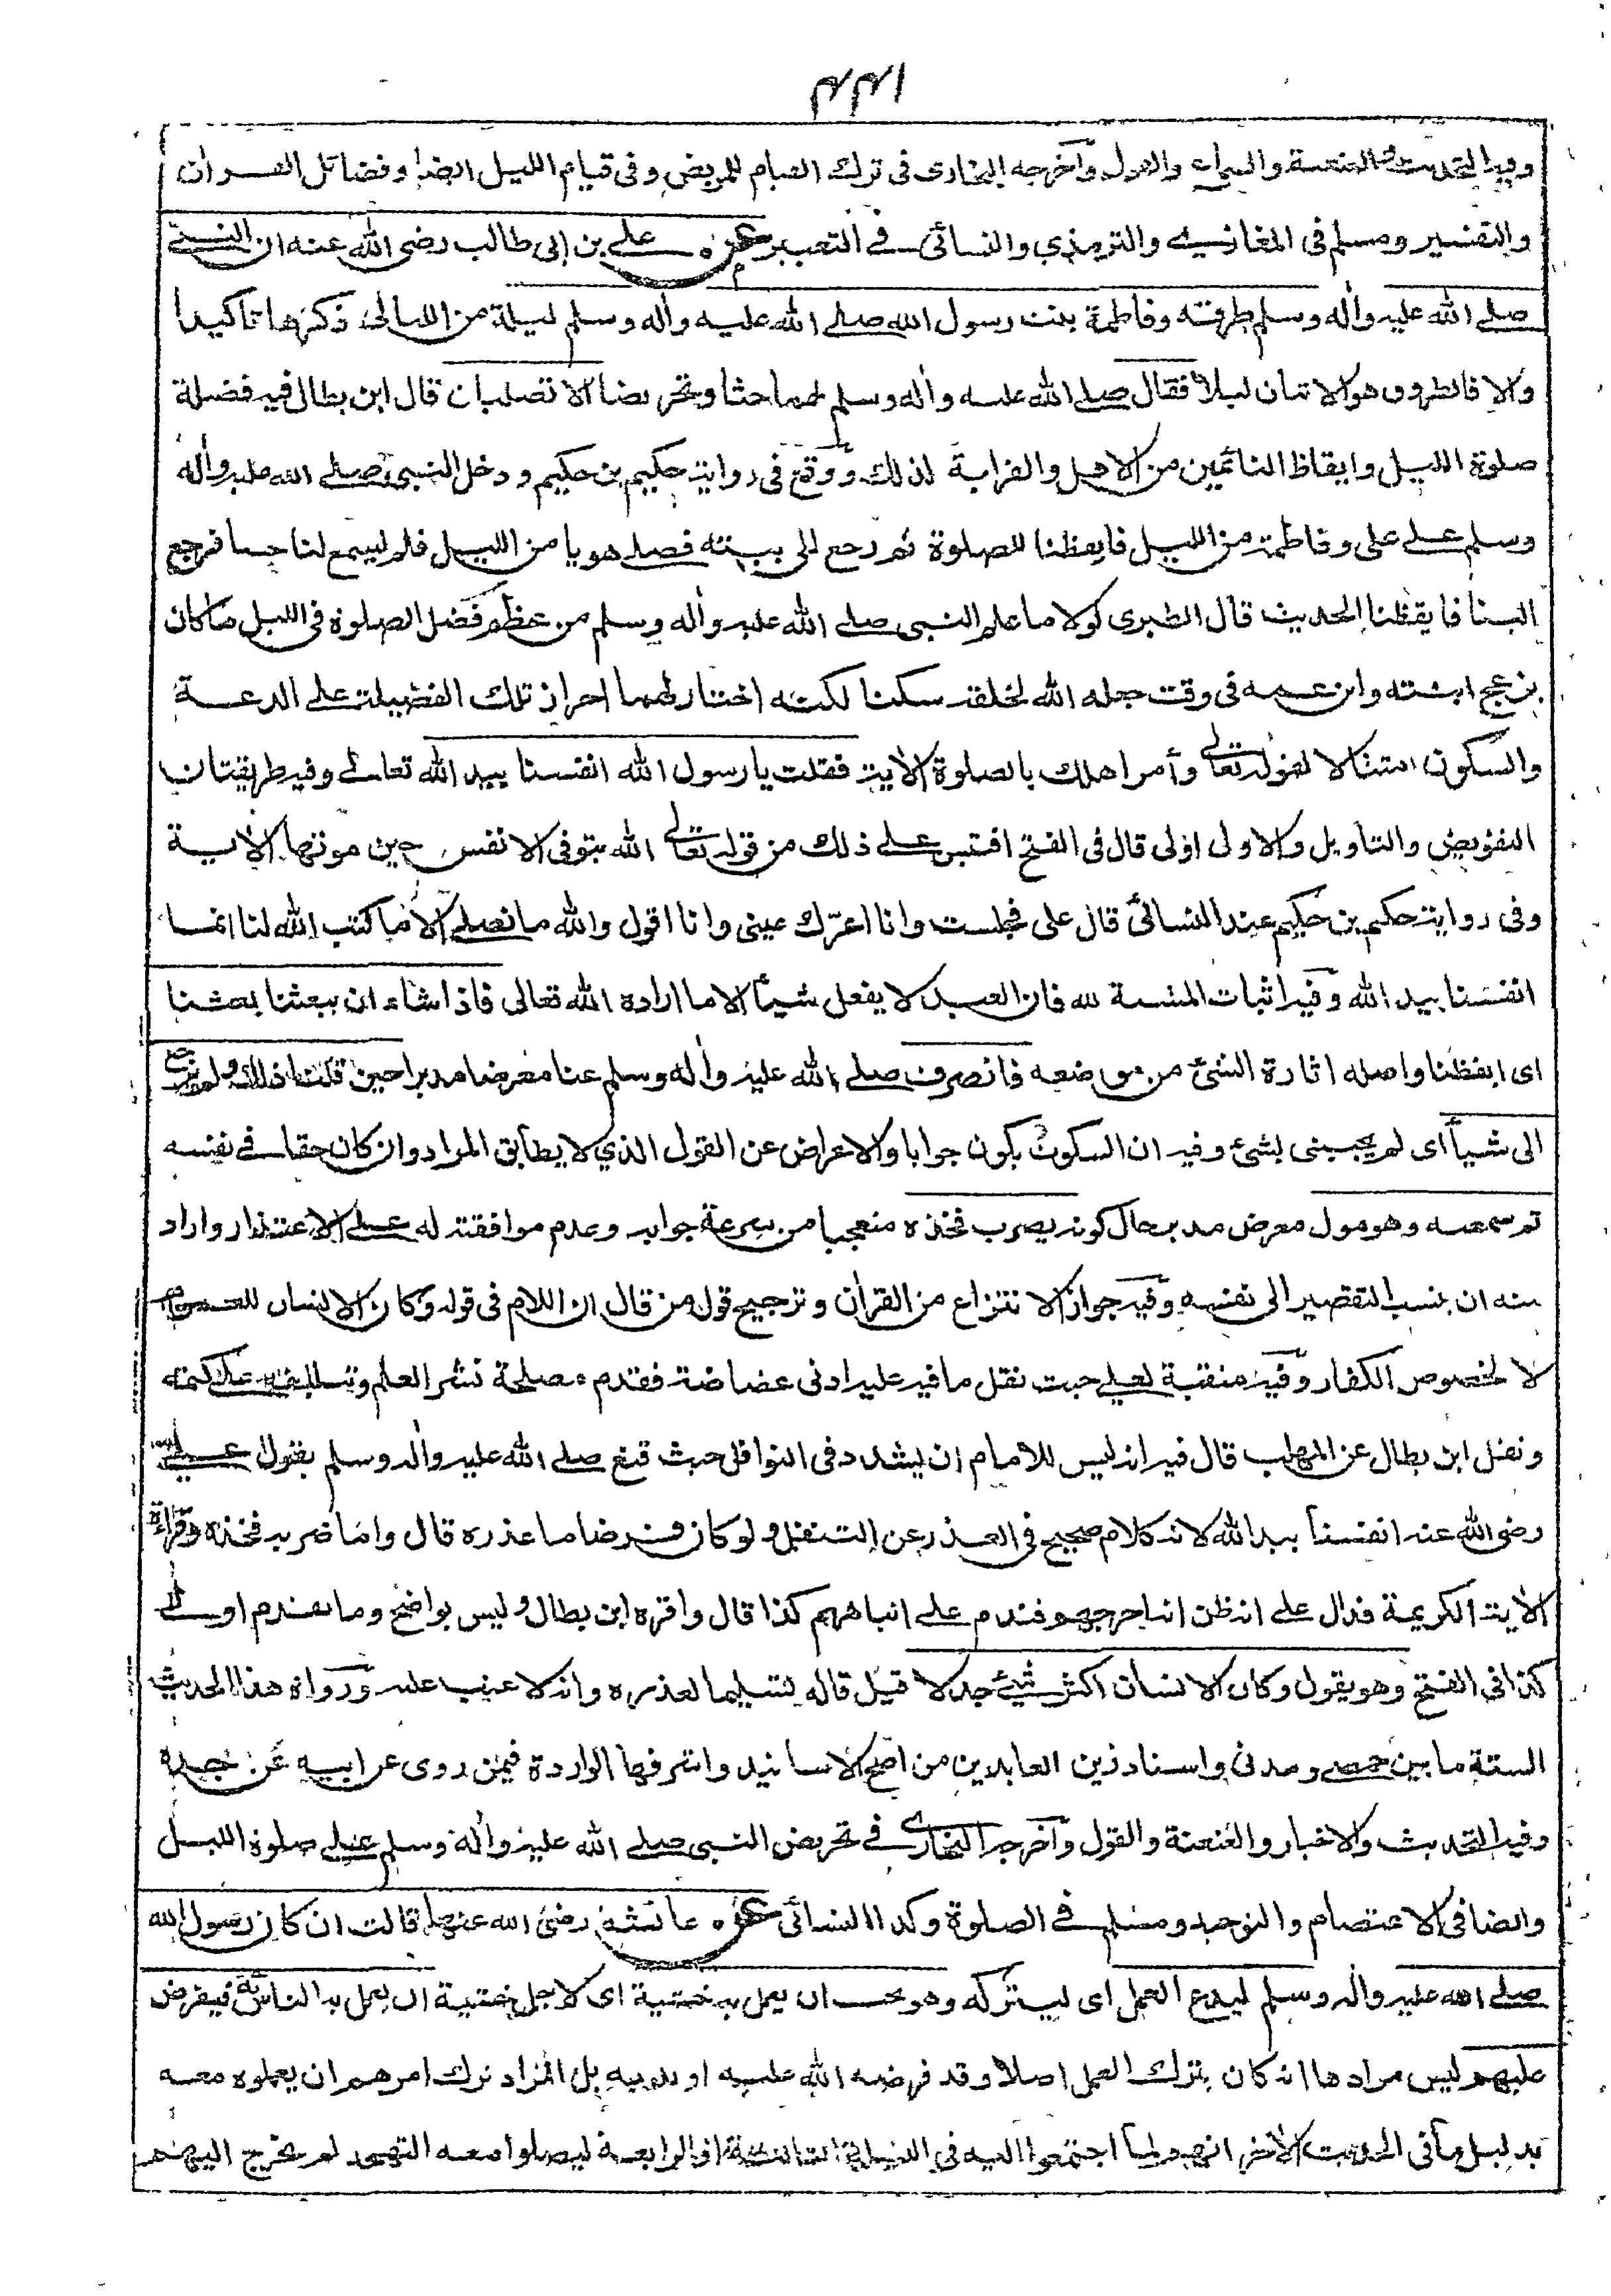 ۱۴۴
وفيه التحديث والعنعنة والسماع والقول وأخرجه البخارى فى ترك القيام للمريض وفى قيام الليل ايضا وفضائل القران
والتفسير ومسلم فى المغازى والترمذي والنسائى فى التعبير عن على بن ابى طالب رضى الله عنه ان النبى
صلے الله عليه وأله وسلم طرقته وفاطمة بنت رسول الله صلے الله عليه وأله وسلم ليلة من الليالى ذكرها تاكيدا
والا فالطروق هو الاتيان ليلا فقال صلے الله عليه وأله وسلم لهما حثا وتحريضا الا تصليان قال ابن بطال فيه فضيلة
صلوة الليل وايقاظ النائمين من الاهل والقرابة لذلك ووقع فى رواية حكيم بن حكيم ودخل النبى صلے الله عليه وأله
وسلم علے على وفاطمة من الليل فايقظنا للصلوة ثم رجع الى بيته فصلے هويا من الليل فلم يسمع لنا حسا فرجع
الينا فايقظنا الحديث قال الطبرى لولا ما علم النبى صلے الله عليه وأله وسلم من عظم فضل الصلوة فى الليل ما كان
يزعج ابنته وابن عمه فى وقت جعله الله لخلقه سكنا لكنه اختار لهما احراز تلك الفضيلة علے الدعة
والسكون امتثالا لقوله تعالى وأمر اهلك بالصلوة الأية فقلت يا رسول الله انفسنا بيد الله تعالى وفيه طريقتان
التفويض والتاويل والاولى اولى قال فى الفتح اقتبس علے ذلك من قوله تعالى الله يتوفى الانفس حين موتها الأية
وفى رواية حكيم بن حكيم عند النسائى قال على فجلست وانا اعرك عينى وانا اقول والله ما نصلے الا ما كتب الله لنا انما
انفسنا بيد الله وفيه اثبات المشية لله فان العبد لا يفعل شيأ الا ما اراده الله تعالى فاذا شاء ان يبعثنا بعثنا
اى ايقظنا واصله اثارة الشئ من موضعه فانصرف صلے الله عليه وأله وسلم عنا معرضا مدبرا حين قلت ذلك ولم يرجع
الى شيأ اى لم يجبنى بشئ وفيه ان السكوت يكون جوابا والاعراض عن القول الذي لا يطابق المراد وان كان حقا فى نفسه
ثم سمعته وهو مول معرض مدبر حال كونه يضرب فخذه متعجبا من سرعة جوابه وعدم موافقته له علے الاعتذار واراد
منه ان ينسب التقصير الى نفسه وفيه جواز الانتزاع من القرأن وترجيح قول من قال ان اللام فى قوله وكان الانسان للعموم
لا لخصوص الكفار وفيه منقبة لعلے حيث نقل ما فيه عليه ادنى غضاضة فقدم مصلحة نشر العلم وتبليغه علے كتمه
ونقل ابن بطال عن المهلب قال فيه انه ليس للامام ان يشدد فى النوافل حيث قنع صلے الله عليه وأله وسلم بقول علے
رضى الله عنه انفسنا بيد الله لانه كلام صحيح فى العذر عن التنفل ولو كان فرضا ما عذره قال واما ضربه فخذه وقراءة
الأية الكريمة فدال علے انه ظن انه احرجهم فندم علے انباههم كذا قال واقره ابن بطال وليس بواضح وما تقدم اولى
كذا فى الفتح وهو يقول وكان الانسان اكثر شئ جدلا قيل قاله تسليما لعذره وانه لا عتب عليه ورواة هذا الحديث
الستة ما بين حمصے ومدنى واسناد زين العابدين من اصح الاسانيد واشرفها الواردة فيمن روى عن ابيه عن جده
وفيه التحديث والاخبار والعنعنة والقول وأخرجه البخارى فى تحريض النبى صلے الله عليه وأله وسلم علے صلوة الليل
وايضا فى الاعتصام والتوحيد ومسلم فى الصلوة وكذا النسائى عن عائشة رضى الله عنها قالت ان كان رسول الله
صلے الله عليه وأله وسلم ليدع العمل اى ليتركه وهو يحب ان يعمل به خشية اى لاجل خشية ان يعمل به الناس فيفرض
عليهم ليس مرادها انه كان يترك العمل اصلا وقد فرضه الله عليه او ندبه بل المراد ترك امرهم ان يعملوه معه
بدليل ما فى الحديث الأخر انهم لما اجتمعوا اليه فى الليلة الثالثة او الرابعة ليصلوا معه التهجد لم يخرج اليهم